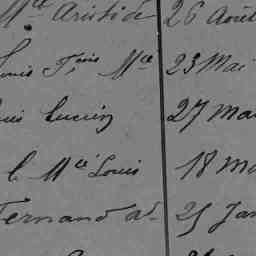 Mce Aristide 26 Août
Louis Fçois Mce 23 Mai
Louis Lucien 27 Mai
L. Mcel Louis 18 Ma
Fernand Ad. 25 Jan